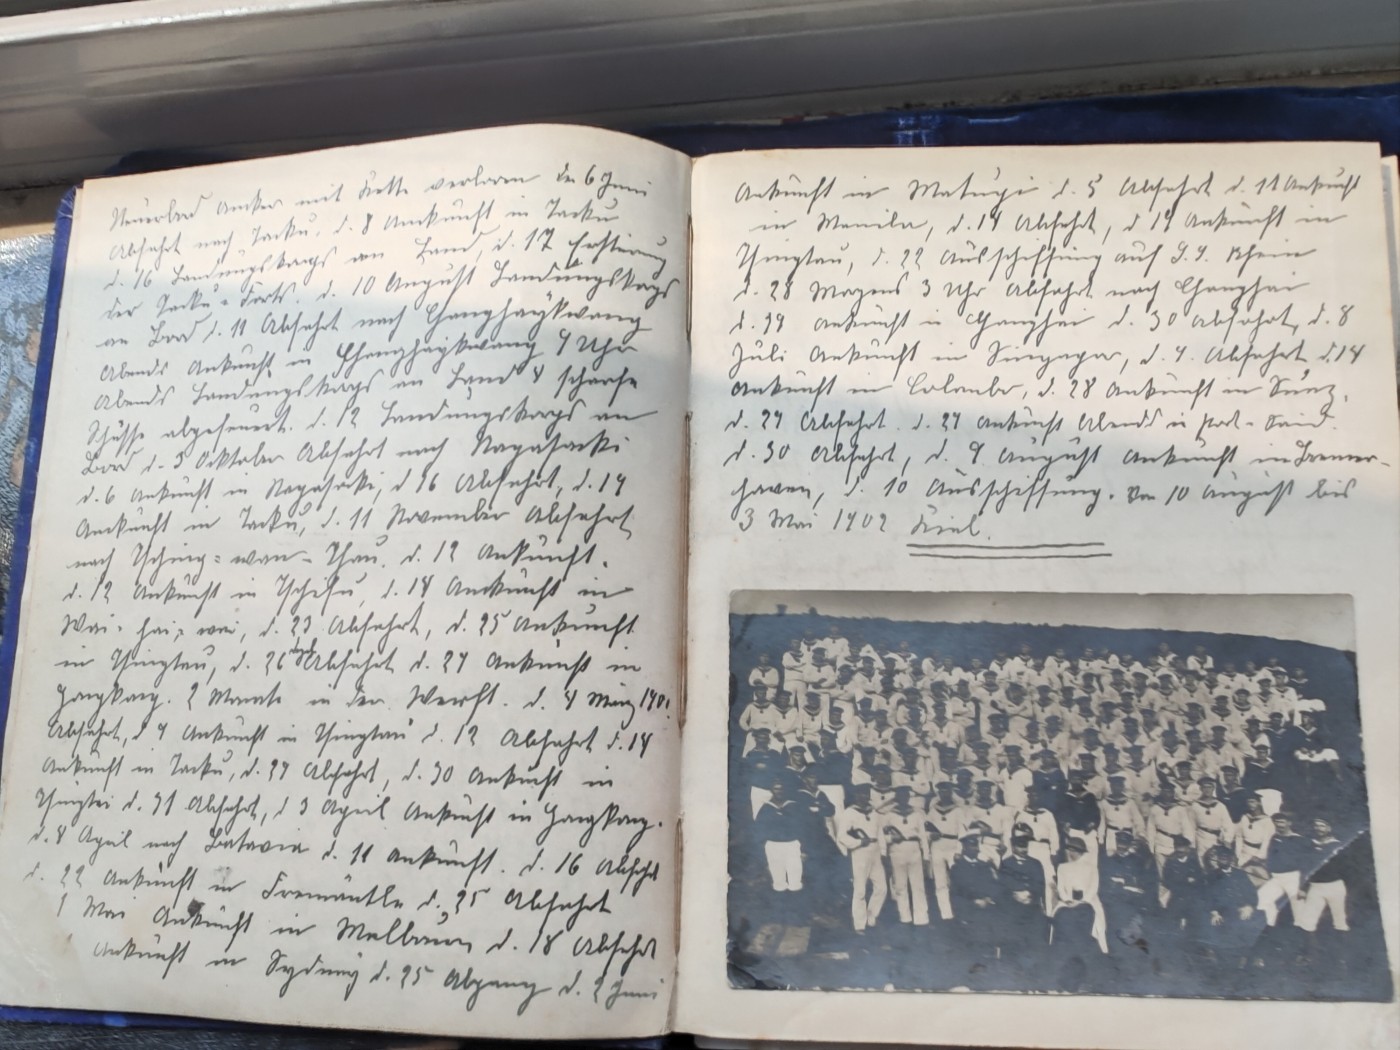 Steuerbord Anker mit Kette verloren den 6 Juni
Abfahrt nach Tacku. d. 8 Ankunft in Tacku
d. 16 Landungskorps an Land, d. 17 Erstürmung
der Tacku-Forts. d. 10 August Landungskorps
an Bord d. 11 Abfahrt nach
Abends Ankunft in 9 Uhr
Abends Landungskorps an Land 4 scharfe
Schüsse abgefeuert. d. 12 Landungskorps an
Bord d. 3 Oktober Abfahrt nach Nagasacki
d. 6 Ankunft in Nagasacki, d 16 Abfahrt, d. 19
Ankunft in Tacku, d. 11 November Abfahrt
nach Tsching-wan-Thau. d. 12 Ankunft.
d. 12 Ankunft in Tschifu, d. 14 Ankunft in
Wai-hai-wai, d. 23 Abfahrt, d. 25 Ankunft
in Thingtau, d. 26 Abfahrt d. 29 Ankunft in
Hongkong. 2 Monate in der Werft. d. 4 März 190
Abfahrt, d 9 Ankunft in Thingtau d. 12 Abfahrt d. 14
Ankunft in Tacku, d. 29 Abfahrt, d. 30 Ankunft in
d. 31 Abfahrt, d 3 April Ankunft in Hongkong.
d. 8 April nach Batavia d. 11 Ankunft. d. 16 Abfahrt
d. 22 Ankunft in Fremäntle d. 25 Abfahrt
1 Mai Ankunft in Melbourn d. 18 Abfahrt
Ankunft in Sydney d. 25 Abgang d. 2 Juni
Ankunft in Matupi d. 5 Abfahrt d. 11 Ankunft
in Manila, d. 14 Abfahrt, d 19 Ankunft in
Thingtau, d. 22 Ausschiffung auf S.S. Rhein
d. 28 Morgens 3 Uhr Abfahrt nach Changhai
d. 29 Ankunft in Changhai d. 30 Abfahrt, d. 8
Juli Ankunft in Singapor, d. 9. Abfahrt d. 14
Ankunft in Colombo, d. 28 Ankunft in Suez,
d. 29 Abfahrt. d. 29 Ankunft Abends in Port-Said.
d. 30 Abfahrt, d. 9 August Ankunft in Bremer-
haven, d. 10 Ausschiffung. Von 10 August bis
3 Mai 1902 Kiel.